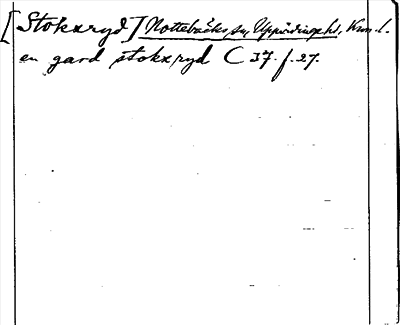 [Stokaryd] Nottebäcks sn, Uppvidinge hd, Kron. l.
en gard stokxryd C 37. f. 27.